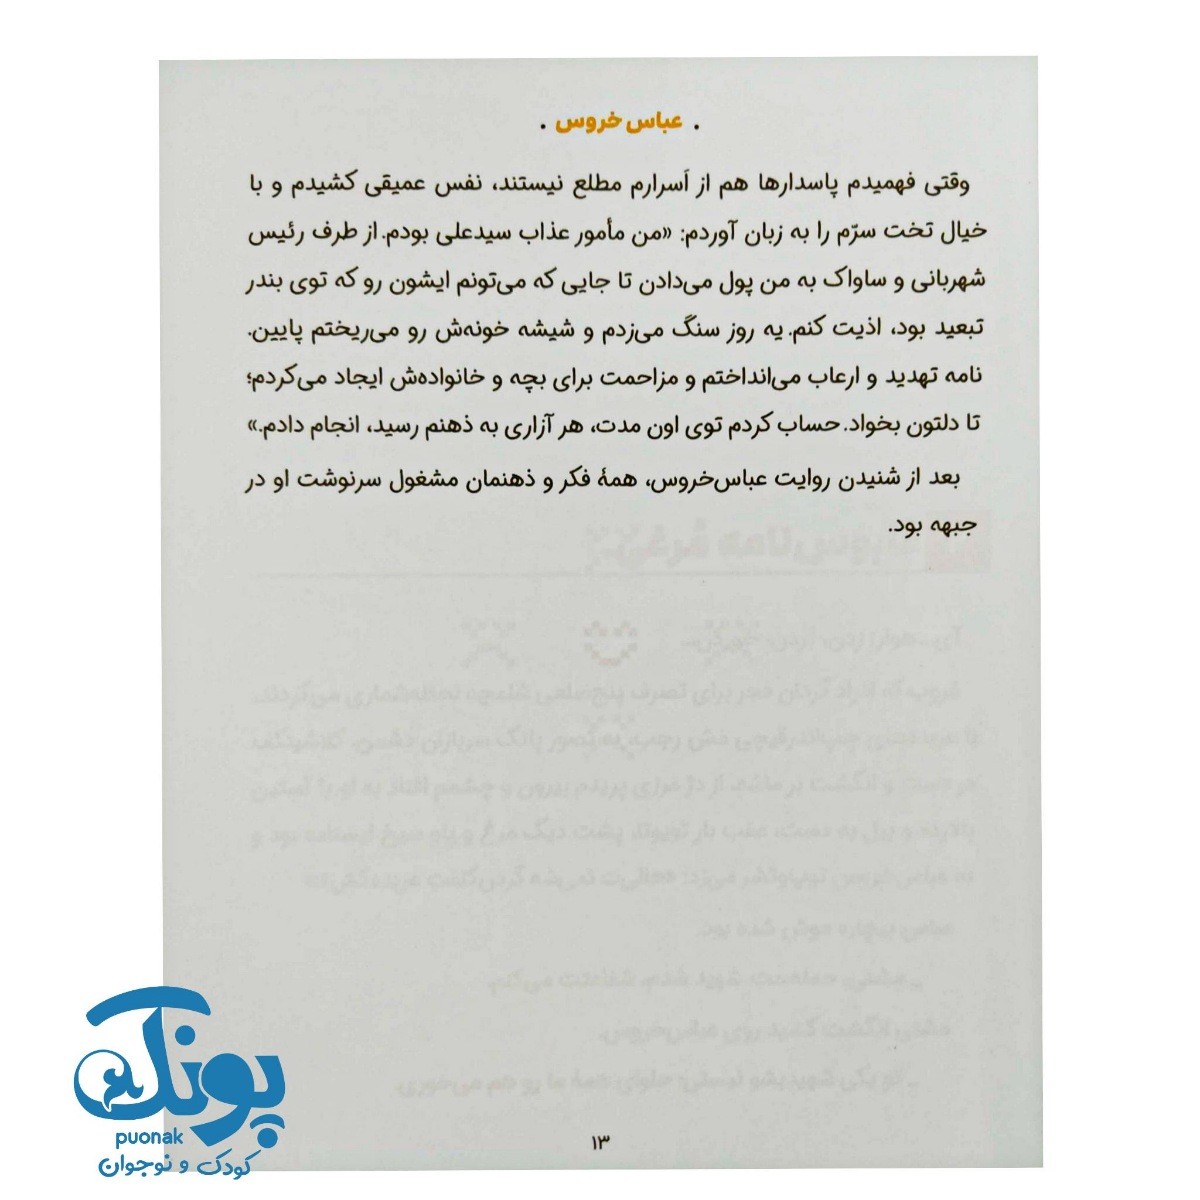 . عباس خروس .
وقتی فهمیدم پاسدارها هم از اَسرارم مطلع نیستند، نفس عمیقی کشیدم و با
خیال تخت سرّم را به زبان آوردم: «من مأمور عذاب سیدعلی بودم. از طرف رئیس
شهربانی و ساواک به من پول می‌دادن تا جایی که می‌تونم ایشون رو که توی بندر
تبعید بود، اذیت کنم. یه روز سنگ می‌زدم و شیشه خونه‌ش رو می‌ریختم پایین.
نامه تهدید و ارعاب می‌انداختم و مزاحمت برای بچه و خانواده‌ش ایجاد می‌کردم؛
تا دلتون بخواد. حساب کردم توی اون مدت، هر آزاری به ذهنم رسید، انجام دادم.»
بعد از شنیدن روایت عباس‌خروس، همهٔ فکر و ذهنمان مشغول سرنوشت او در
جبهه بود.
۱۳
پونک
puonak
کودک و نوجوان